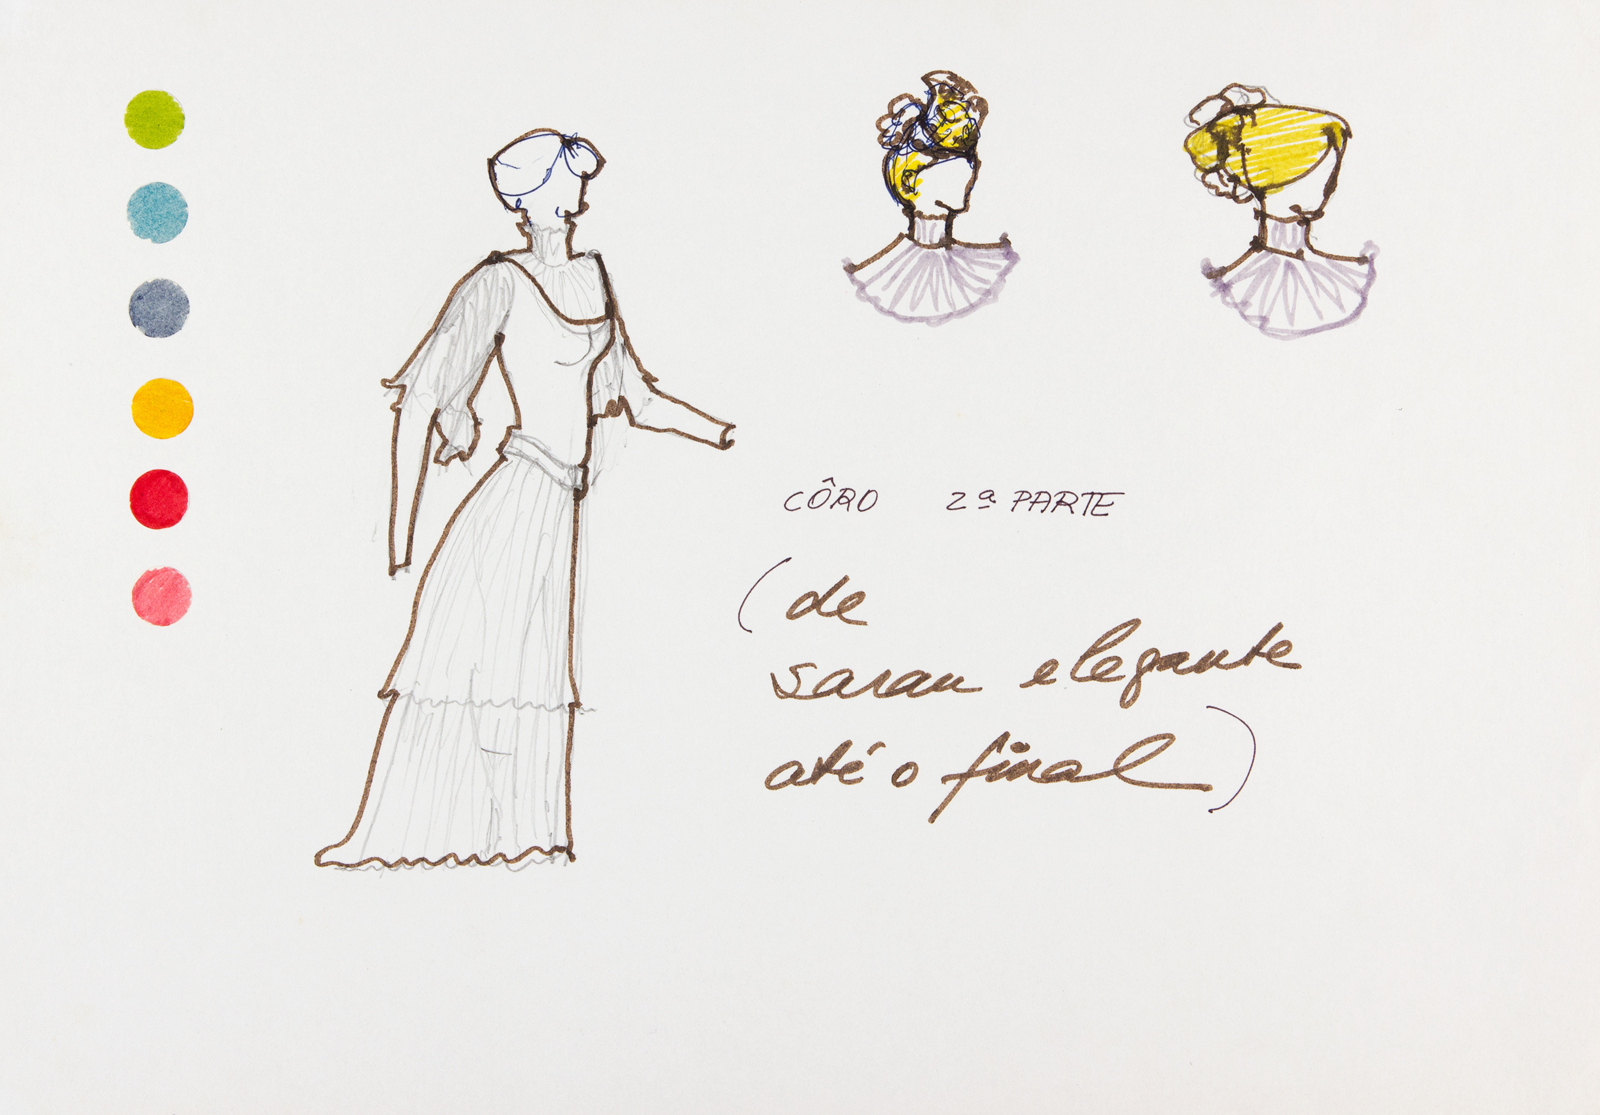 CÔRO 2ª PARTE
(de
sarau elegante
até o final)